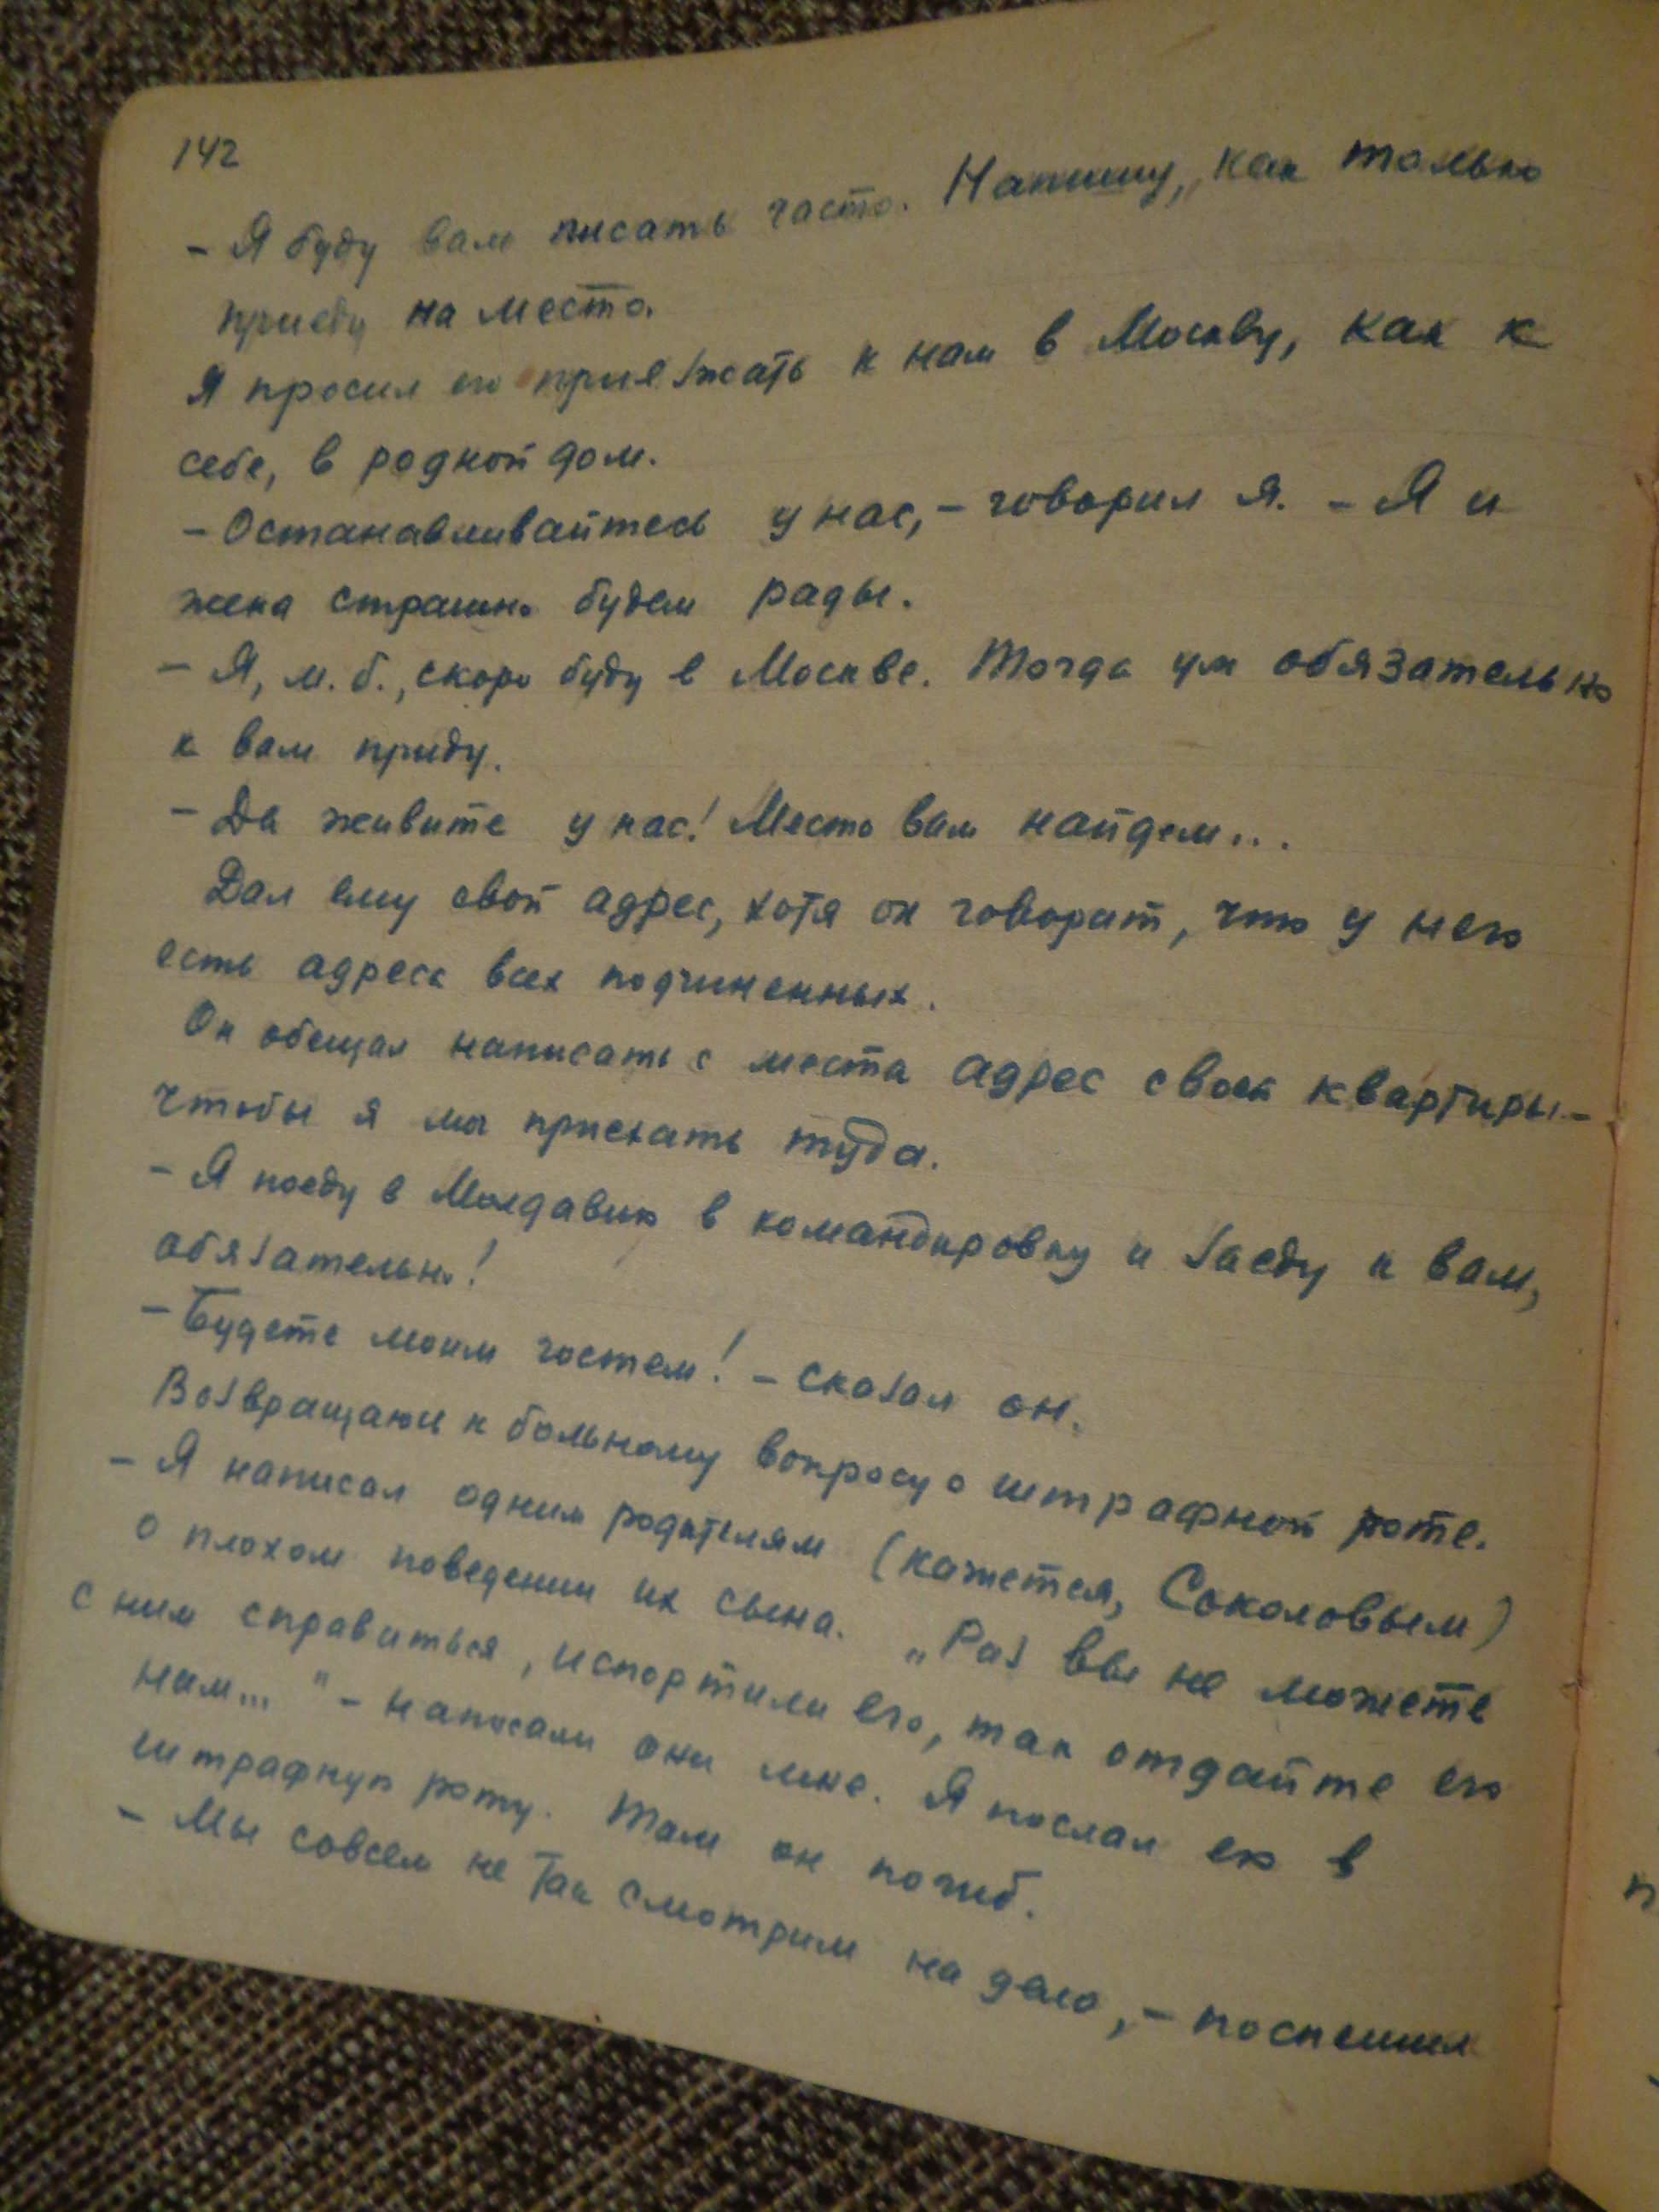 142
- Я буду вам писать часто. Напишу, как только
приеду на место.
Я просил его приезжать к нам в Москву, как к
себе, в родной дом.
- Останавливайтесь у нас, - говорил я. - Я и
жена страшно будем рады.
- Я, м.б., скоро буду в Москве. Тогда уж обязательно
к вам приду.
- Да живите у нас! Место вам найдем...
Дал ему свой адрес, хотя он говорит, что у него
есть адреса всех подчиненных.
Он обещал написать с места адрес своей квартиры -
чтобы я мог приехать туда.
- Я поеду в Молдавию в командировку и заеду к вам,
обязательно!
- Будете моим гостем! - сказал он.
Возвращаюсь к больному вопросу о штрафной роте.
- Я написал одним родителям (кажется, Соколовым)
о плохом поведении их сына. „Раз вы не можете
с ним справиться, испортили его, так отдайте его
нам..." - написали они мне. Я послал его в
штрафную роту. Там он погиб.
- Мы совсем не так смотрим на дело, - поспешил